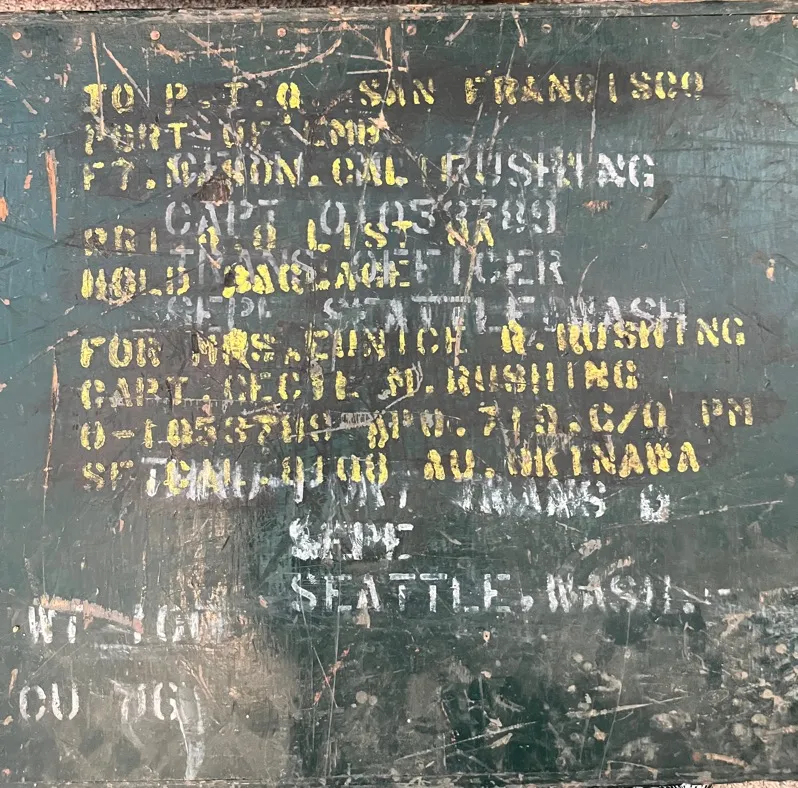 TO P.T.O. SAN FRANCISCO
PORT OF EMB
FT. MASON.CAL RUSHING
CAPT 01058789
LIST NA
TRANS OFFICER
HOLD BAGGAGE
SEPE SEATTLE WASH
FOR MRS.EUNICE Q.RUSHING
CAPT.CECIL M.RUSHING
O-1058789 APO.719.C/O PM
AU.OKINAWA
PORT TRANS O
SEPE
SEATTLE,WASH.
WT
CU